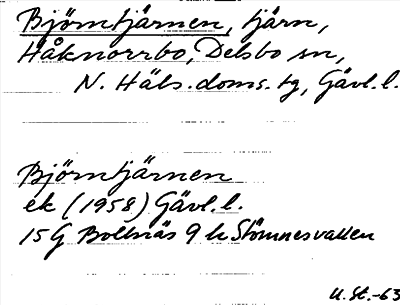 Björntjärnen, tjärn,
Håknorrbo, Delsbo sn,
N. Häls. doms. tg, Gävl. l.
Björntjärnen
ek (1958) Gävl. l.
15G Bollnäs 9 h Stömnesvallen
U. St. -63